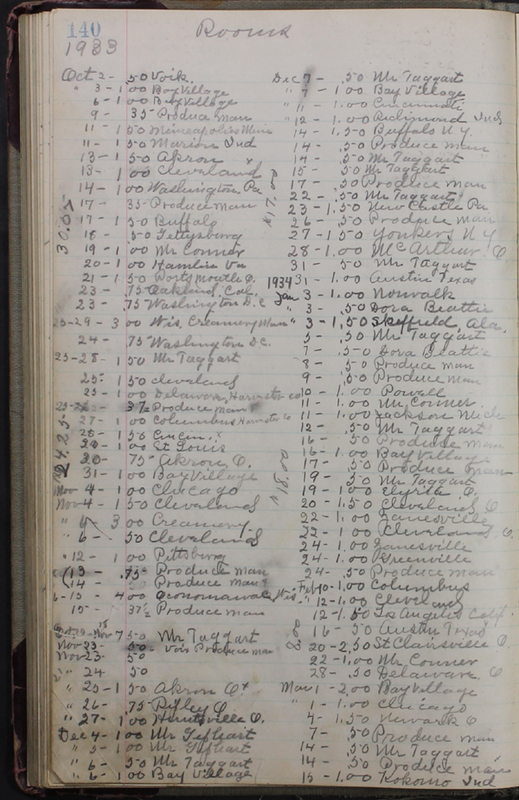 140
Rooms
1933
Oct 2 - .50 Voik.
" 3 - 1 00 Bay Village
6 - 1 00 Bay Village
9 - 35 Produce man
11 - 1 50 Mineapolis Minn
11 - 1 50 Marion Ind
13 - 1 50 Akron
13 - 1 00 Cleveland
14 - 1 00 Washington Pa
17 - 35 Produce Man
17 - 1 50 Buffalo
18 - .50 Gettysburg
19 - 1 00 Mr Conner
20 - 1 00 Hamlin Va
21 - 1 50 Portsmouth O.
23 - .75 Oakland, Cal.
23 - .75 Washington D.C
25-29 - 3 00 Wis. Creamery Man
24 - .75 Washington D.C.
25-28 - 1 50 Mr Taggart
25 - 1 50 Cleveland
25 - 1 00 Delaware, Harvester co
37½ Produce man
27 - 1 00 Columbus Harvester Co
28 - 1 50 Cincin.
1 00 St Louis
30 - .75 Akron, O.
31 - 1 00 Bay Village
Nov 4 - 1 00 Chicago
Nov 4 - 1 50 Cleveland
3 00 Creamery
" 6 - .50 Cleveland
" 12 - 1 00 Pittsburg
(13 - .75 Produce Man
(14 - Produce man
6-15 - 4 00 Oconomowac Wis.
15 - 37½ Produce man
7 50 Mr Taggart
Nov 23 - .50 Produce man
Nov 23 - 50
" 24 50
" 25 - 1 50 Akron O
" 26 - .75 Ripley O
" 27 - 1 00 Huntsville O.
Dec 4 - 1 00 Mr Gephart
" 5 - 1 00 Mr Gephart
" 6 - .50 Mr Taggart
" 6 - 1 00 Bay Village
Dec 7 - .50 Mr Taggart
" 7 - 1 00 Bay Village
" 11 - 1.00 Cincinnati
" 12 - 1.00 Richmond Ind
14 - 1.50 Buffalo N.Y.
14 - .50 Produce man
14 - .50 Mr Taggart
15 - .50 Mr Taggart
17 - .50 Produce man
22 - .50 Mr Taggart
23 - 1.50 New Castle Pa
26 - .50 Produce man
27 - 1.50 Yonkers N Y
28 - 1.00 McArthur O
31 - .50 Mr Taggart
1934 31 - 1.00 Austin Texas
Jan 3 - 1.00 Norwalk
" 3 - .50 Dora Beattie
" 3 - 1.50 Sheffield, Ala.
5 - .50 Mr Taggart
7 - .50 Dora Beattie
8 - .50 Produce man
9 - .50 Produce man
10 - 1.00 Powell
11 - 1.00 Mr Conner
11 - 1.00 Jackson Mich
12 - .50 Mr Taggart
16 - .50 Produce Man
16 - 1.00 Bay Village
17 - .50 Produce man
19 - .50 Mr Taggart
19 - 1.00 Elyria O.
20 - 1.50 Cleveland O
22 - 1.00 Zanesville
22 - 1.00 Cleveland, O.
24 - 1.00 Zanesville
24 - 1.00 Greenville
24 - .50 Produce man
Feb 10 - 1.00 Columbus
" 12 - 1.00 Cleveland
12 - 1.50 Los Angeles Calif
16 - .50 Austin Texas
20 - 2.50 St Clairsville O
22 - 1.00 Mr Conner
28 - .50 Delaware O
Mar 1 - 2.00 Bay Village
" 1 - 1.00 Chicago
4 - 1.50 Newark O
7 - .50 Produce man
14 - .50 Mr Taggart
14 - .50 Produce man
15 - 1.00 Kokomo Ind